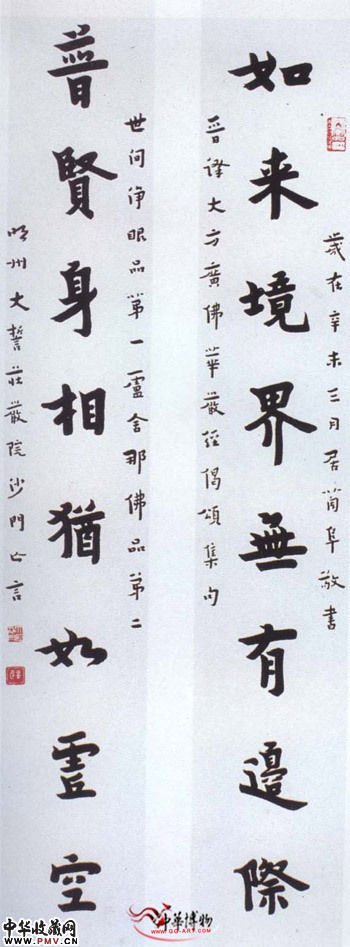 歲在辛未三月居阜敬書
如来境界無有邊際
晉譯大方廣佛華嚴經偈頌集句
世间淨眼品第一盧舍那佛品第二
普賢身相猶如虛空
明州大誓莊嚴院沙門亡言
中华收藏网
WWW.PMV.CN
中華博物
WWW.GG-ART.COM